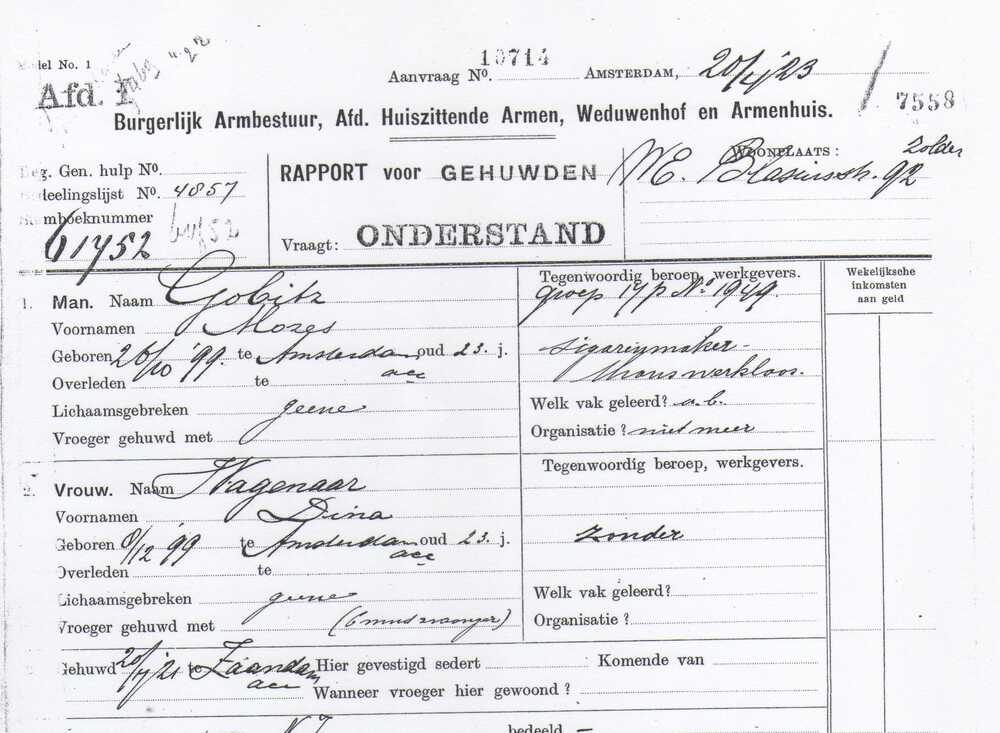 del No. 1
Afd. I
Aanvraag No. 10714 Amsterdam, 20/4 '23
7558
Burgerlijk Armbestuur, Afd. Huiszittende Armen, Weduwenhof en Armenhuis.
eg. Gen. hulp No.
deelingslijst No. 4857
mboeknummer
61752
RAPPORT voor GEHUWDEN
Vraagt: ONDERSTAND
Woonplaats: Zolder
Blasiusstr. 92
1. Man. Naam Gobitz
Voornamen Mozes
Geboren 26/10 '99 te Amsterdam oud 23. j.
acc
Overleden te
Lichaamsgebreken geene
Vroeger gehuwd met
Tegenwoordig beroep, werkgevers.
groep No 1949.
sigarenmaker
thans werkloos.
Welk vak geleerd? a.b.
Organisatie? niet meer
Wekelijksche
inkomsten
aan geld
2. Vrouw. Naam Wagenaar
Voornamen Dina
Geboren 8/12 '99 te Amsterdam oud 23. j.
acc
Overleden te
Lichaamsgebreken geene
Vroeger gehuwd met (6 mnd zwanger)
Tegenwoordig beroep, werkgevers.
zonder
Welk vak geleerd?
Organisatie?
Gehuwd 20/4/21 te Zaandam
acc
Hier gevestigd sedert Komende van
Wanneer vroeger hier gewoond?
bedeeld —